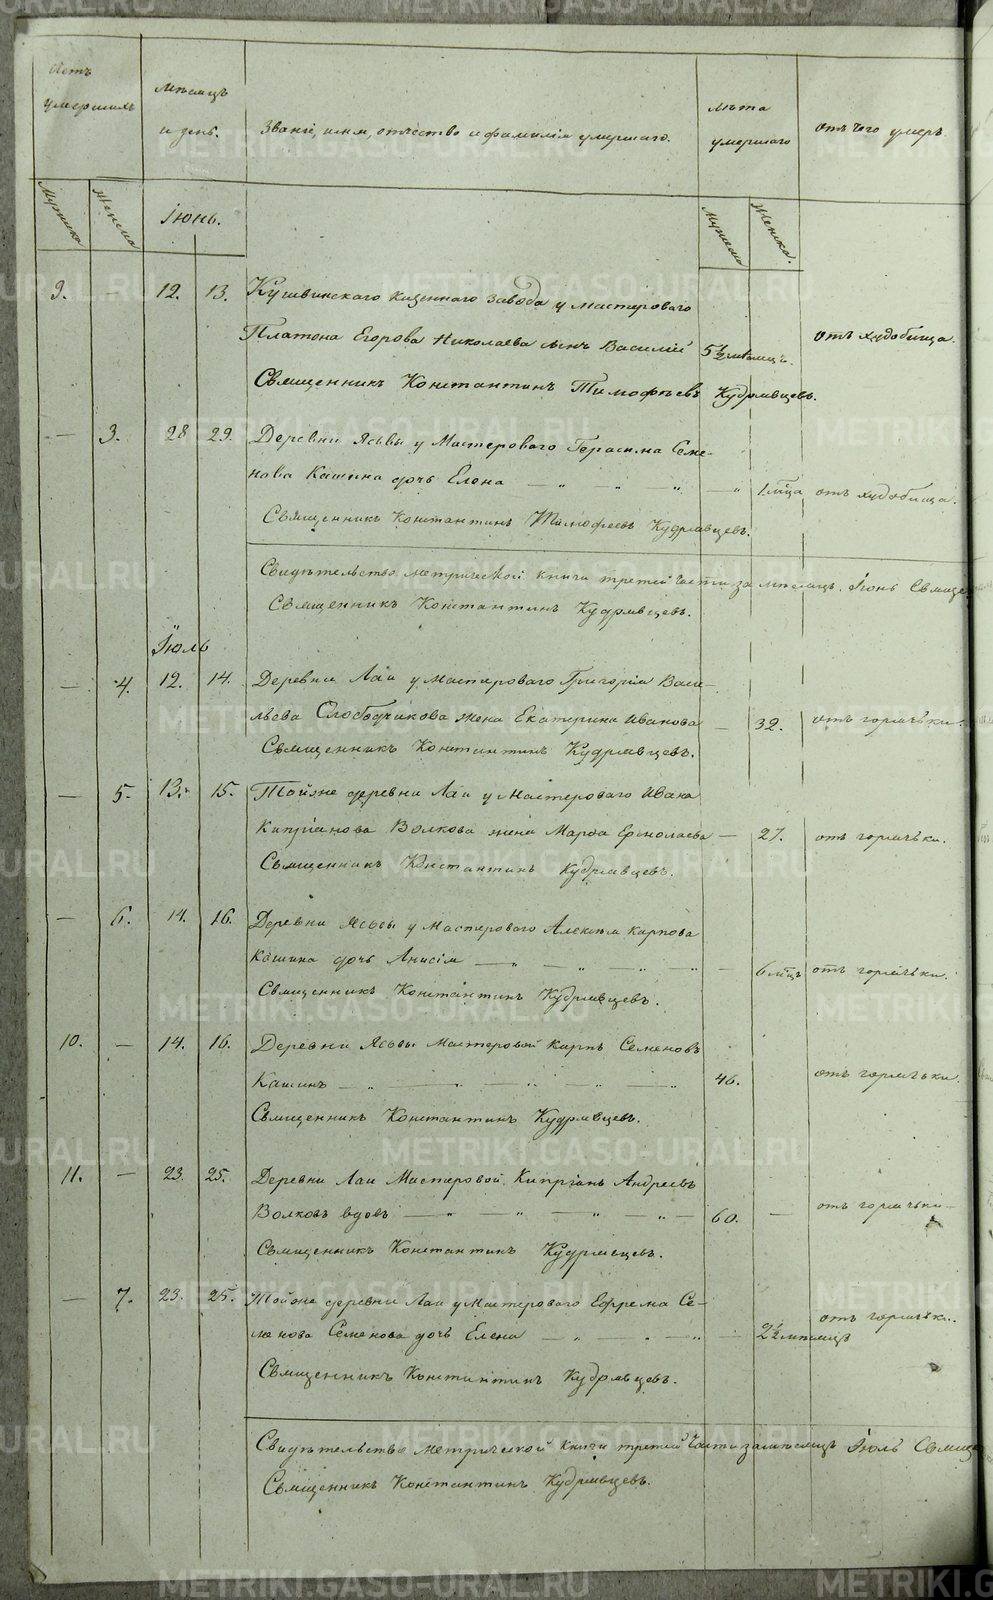 METRIKI.GASO-URAL.RU
умершихъ
Мѣсяцъ
и день.
Званіе, имя, отчество и фамилія умершаго.
Лѣта
умершаго
отъ чего умеръ.
Мужеска
Женска
Іюнь.
Мужеска
Женска.
9. — 12. 13. Кушвинскаго казеннаго завода у мастероваго
Платона Егорова Николаева сынъ Василій 5½ мѣсяцъ. отъ худобища.
Священникъ Константинъ Тимофѣевъ Кудрявцевъ.
— 3. 28 29. Деревни Ясьвы у Мастероваго Герасима Семе-
нова Кашина дочь Елена — „ — „ — „ 1 мца отъ худобища.
Священникъ Константинъ Тимофеевъ Кудрявцевъ.
Свидѣтельство метрической книги третей части за мѣсяцъ Іюнь Свяще
Священникъ Константинъ Кудрявцевъ.
Іюль
— 4. 12. 14. Деревни Лаи у Мастероваго Григорія Васи-
льева Слободчикова жена Екатерина Иванова — 32. отъ горячьки.
Священникъ Константинъ Кудрявцевъ.
— 5. 13. 15. Тойже деревни Лаи у Мастероваго Ивана
Кипріанова Волкова жена Марѳа Ермолаева — 27. отъ горячьки.
Священникъ Константинъ Кудрявцевъ.
— 6. 14. 16. Деревни Ясьвы у Мастероваго Алексѣя Карпова
Кашина дочь Анисія — „ — „ — „ — 6 мцъ отъ горячьки.
Священникъ Константинъ Кудрявцевъ.
10. — 14. 16. Деревни Ясьвы Мастеровой Карпъ Семеновъ
Кашинъ — „ — „ — „ — „ 46. отъ горячьки.
Священникъ Константинъ Кудрявцевъ.
11. — 23. 25. Деревни Лаи Мастеровой Кипріанъ Андреевъ
Волковъ вдовъ — „ — „ — „ — „ — 60. — отъ горячьки —
Священникъ Константинъ Кудрявцевъ.
— 7. 23. 25. Тойже деревни Лаи у Мастероваго Ефрема Се-
менова Семенова дочь Елена — „ — „ — „ — 2½ мѣсяцъ отъ горячьки.
Священникъ Константинъ Кудрявцевъ.
Свидѣтельство метрической книги третей части за мѣсяцъ Іюль Свяще
Священникъ Константинъ Кудрявцевъ.